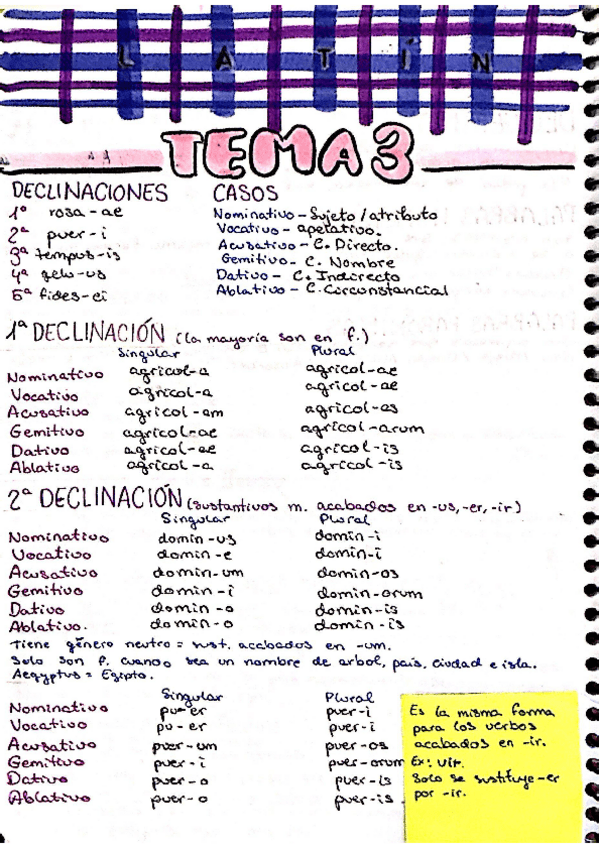 LATÍN
TEMA 3
DECLINACIONES
1ª rosa - ae
2ª puer - i
3ª tempus - is
4ª gelu - us
5ª fides - ei
CASOS
Nominativo - Sujeto / atributo
Vocativo - apelativo.
Acusativo - C. Directo.
Gemitivo - C. Nombre
Dativo - C. Indirecto
Ablativo - C. Circunstancial
1ª DECLINACIÓN (la mayoría son en f.)
Singular Plural
Nominativo agricol-a agricol-ae
Vocativo agricol-a agricol-ae
Acusativo agricol-am agricol-as
Gemitivo agricol-ae agricol-arum
Dativo agricol-ae agricol-is
Ablativo agricol-a agricol-is
2ª DECLINACIÓN (sustantivos m. acabados en -us, -er, -ir)
Singular Plural
Nominativo domin-us domin-i
Vocativo domin-e domin-i
Acusativo domin-um domin-os
Gemitivo domin-i domin-orum
Dativo domin-o domin-is
Ablativo. domin-o domin-is
Tiene género neutro = sust. acabados en -um.
Solo son f. cuando sea un nombre de arbol, país, ciudad e isla.
Aegyptus = Egipto.
Singular Plural
Nominativo pu-er puer-i
Vocativo pu-er puer-i
Acusativo puer-um puer-os
Gemitivo puer-i puer-orum
Dativo puer-o puer-is
Ablativo puer-o puer-is
Es la misma forma
para los verbos
acabados en -ir.
Ex: vir.
Solo se sustituye -er
por -ir.